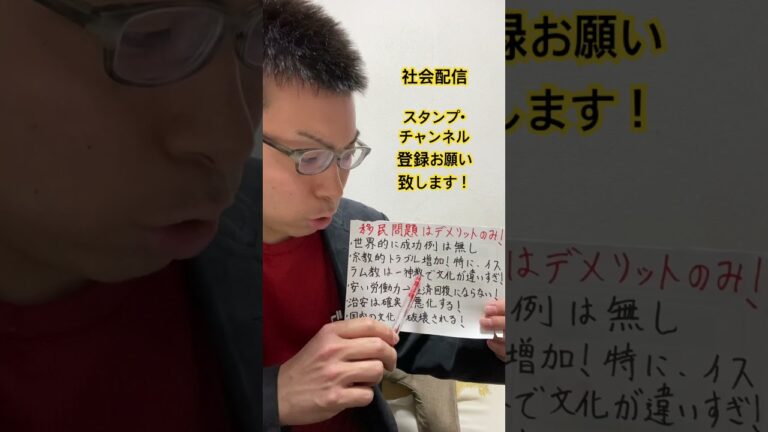 社会配信
スタンプ・
チャンネル
登録お願い
致します！
移民問題はデメリットのみ！
・世界的に成功例は無し
・宗教的トラブル増加！特に、イス
ラム教は一神教で文化が違いすぎ！
・安い労働力→経済回復にならない！
・治安は確実 悪化する！
・国家の文化 破壊される！
録お願い
します！
はデメリットのみ！
例は無し
増加！特に、イス
で文化が違いすぎ！